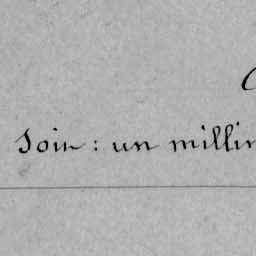 Soin : un millin